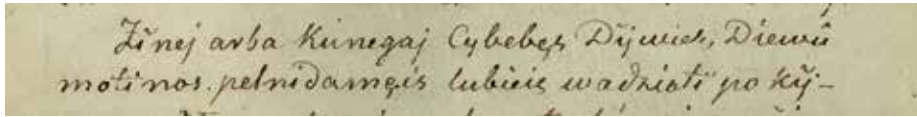 Žinej arba Kunegaj Cybebęs Dijwies, Diewû
motinos. pelnidamęis lubicię wadzioti po kij-